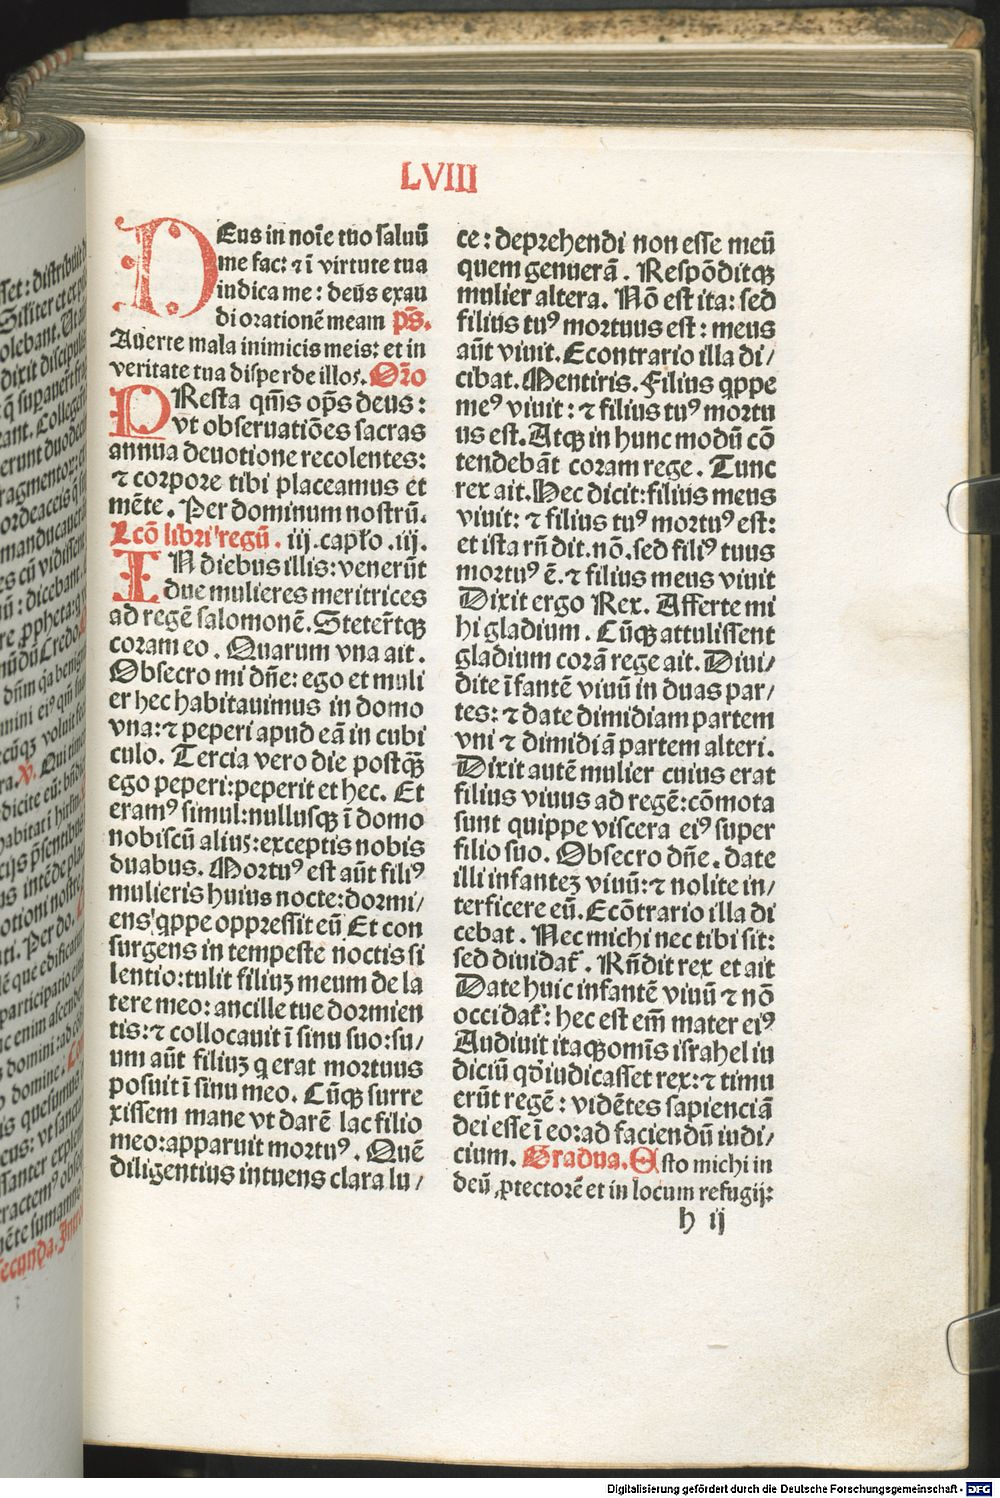 LVIII
DEus in noīe tuo saluū
me fac: ⁊ ī virtute tua
iudica me: deus exau
di orationē meam ps̄.
Auerte mala inimicis meis: et in
veritate tua disperde illos. Orō
PResta qm̄s op̄s deus:
vt obseruatiōes sacras
annua deuotione recolentes:
⁊ corpore tibi placeamus et
mēte. Per dominum nostrū.
Lcō libri regū. iij. capło. iij.
IN diebus illis: venerūt
due mulieres meritrices
ad regē salomonē. Steter̄tqꝫ
coram eo. Quarum vna ait.
Obsecro mi dn̄e: ego et muli
er hec habitauimus in domo
vna: ⁊ peperi apud eā in cubi
culo. Tercia vero die postqꝫ̄
ego peperi: peperit et hec. Et
eramꝰ simul: nullusqꝫ ī domo
nobiscū alius: exceptis nobis
duabus. Mortuꝰ est aūt filiꝰ
mulieris huius nocte: dormi/
ens qꝑpe oppressit eū Et con
surgens in tempeste noctis si
lentio: tulit filiuꝫ meum de la
tere meo: ancille tue dormien
tis: ⁊ collocauit ī sinu suo: su/
um aūt filiuꝫ q erat mortuus
posuit ī sinu meo. Cūqꝫ surre
xissem mane vt darē lac filio
meo: apparuit mortuꝰ. Quē
diligentius intuens clara lu/
ce: deprehendi non esse meū
quem genuerā. Respōditqꝫ
mulier altera. Nō est ita: sed
filius tuꝰ mortuus est: meus
aūt viuit. Econtrario illa di/
cibat. Mentiris. Filius qꝑpe
meꝰ viuit: ⁊ filius tuꝰ mortu
us est. Atqꝫ in hunc modū cō
tendebāt coram rege. Tunc
rex ait. Hec dicit: filius meus
viuit: ⁊ filius tuꝰ mortuꝰ est:
et ista rn̄dit. nō. sed filiꝰ tuus
mortuꝰ ē. ⁊ filius meus viuit
Dixit ergo Rex. Afferte mi
hi gladium. Cūqꝫ attulissent
gladium corā rege ait. Diui/
dite īfantē viuū in duas par/
tes: ⁊ date dimidiam partem
vni ⁊ dimidiā partem alteri.
Dixit autē mulier cuius erat
filius viuus ad regē: cōmota
sunt quippe viscera eiꝰ super
filio suo. Obsecro dn̄e. date
illi infanteꝫ viuū: ⁊ nolite in/
terficere eū. Ecōtrario illa di
cebat. Nec michi nec tibi sit:
sed diuidat̄. Rn̄dit rex et ait
Date huic infantē viuū ⁊ nō
occidat̄: hec est em̄ mater eiꝰ
Audiuit itaqꝫ om̄is israhel iu
diciū qd̄ iudicasset rex: ⁊ timu
erūt regē: vidētes sapienciā
dei esse ī eo: ad faciendū iudi/
cium. Gradua. Esto michi in
deū ꝓtectorē et in locum refugij:
h ij
Digitalisierung gefördert durch die Deutsche Forschungsgemeinschaft - DFG